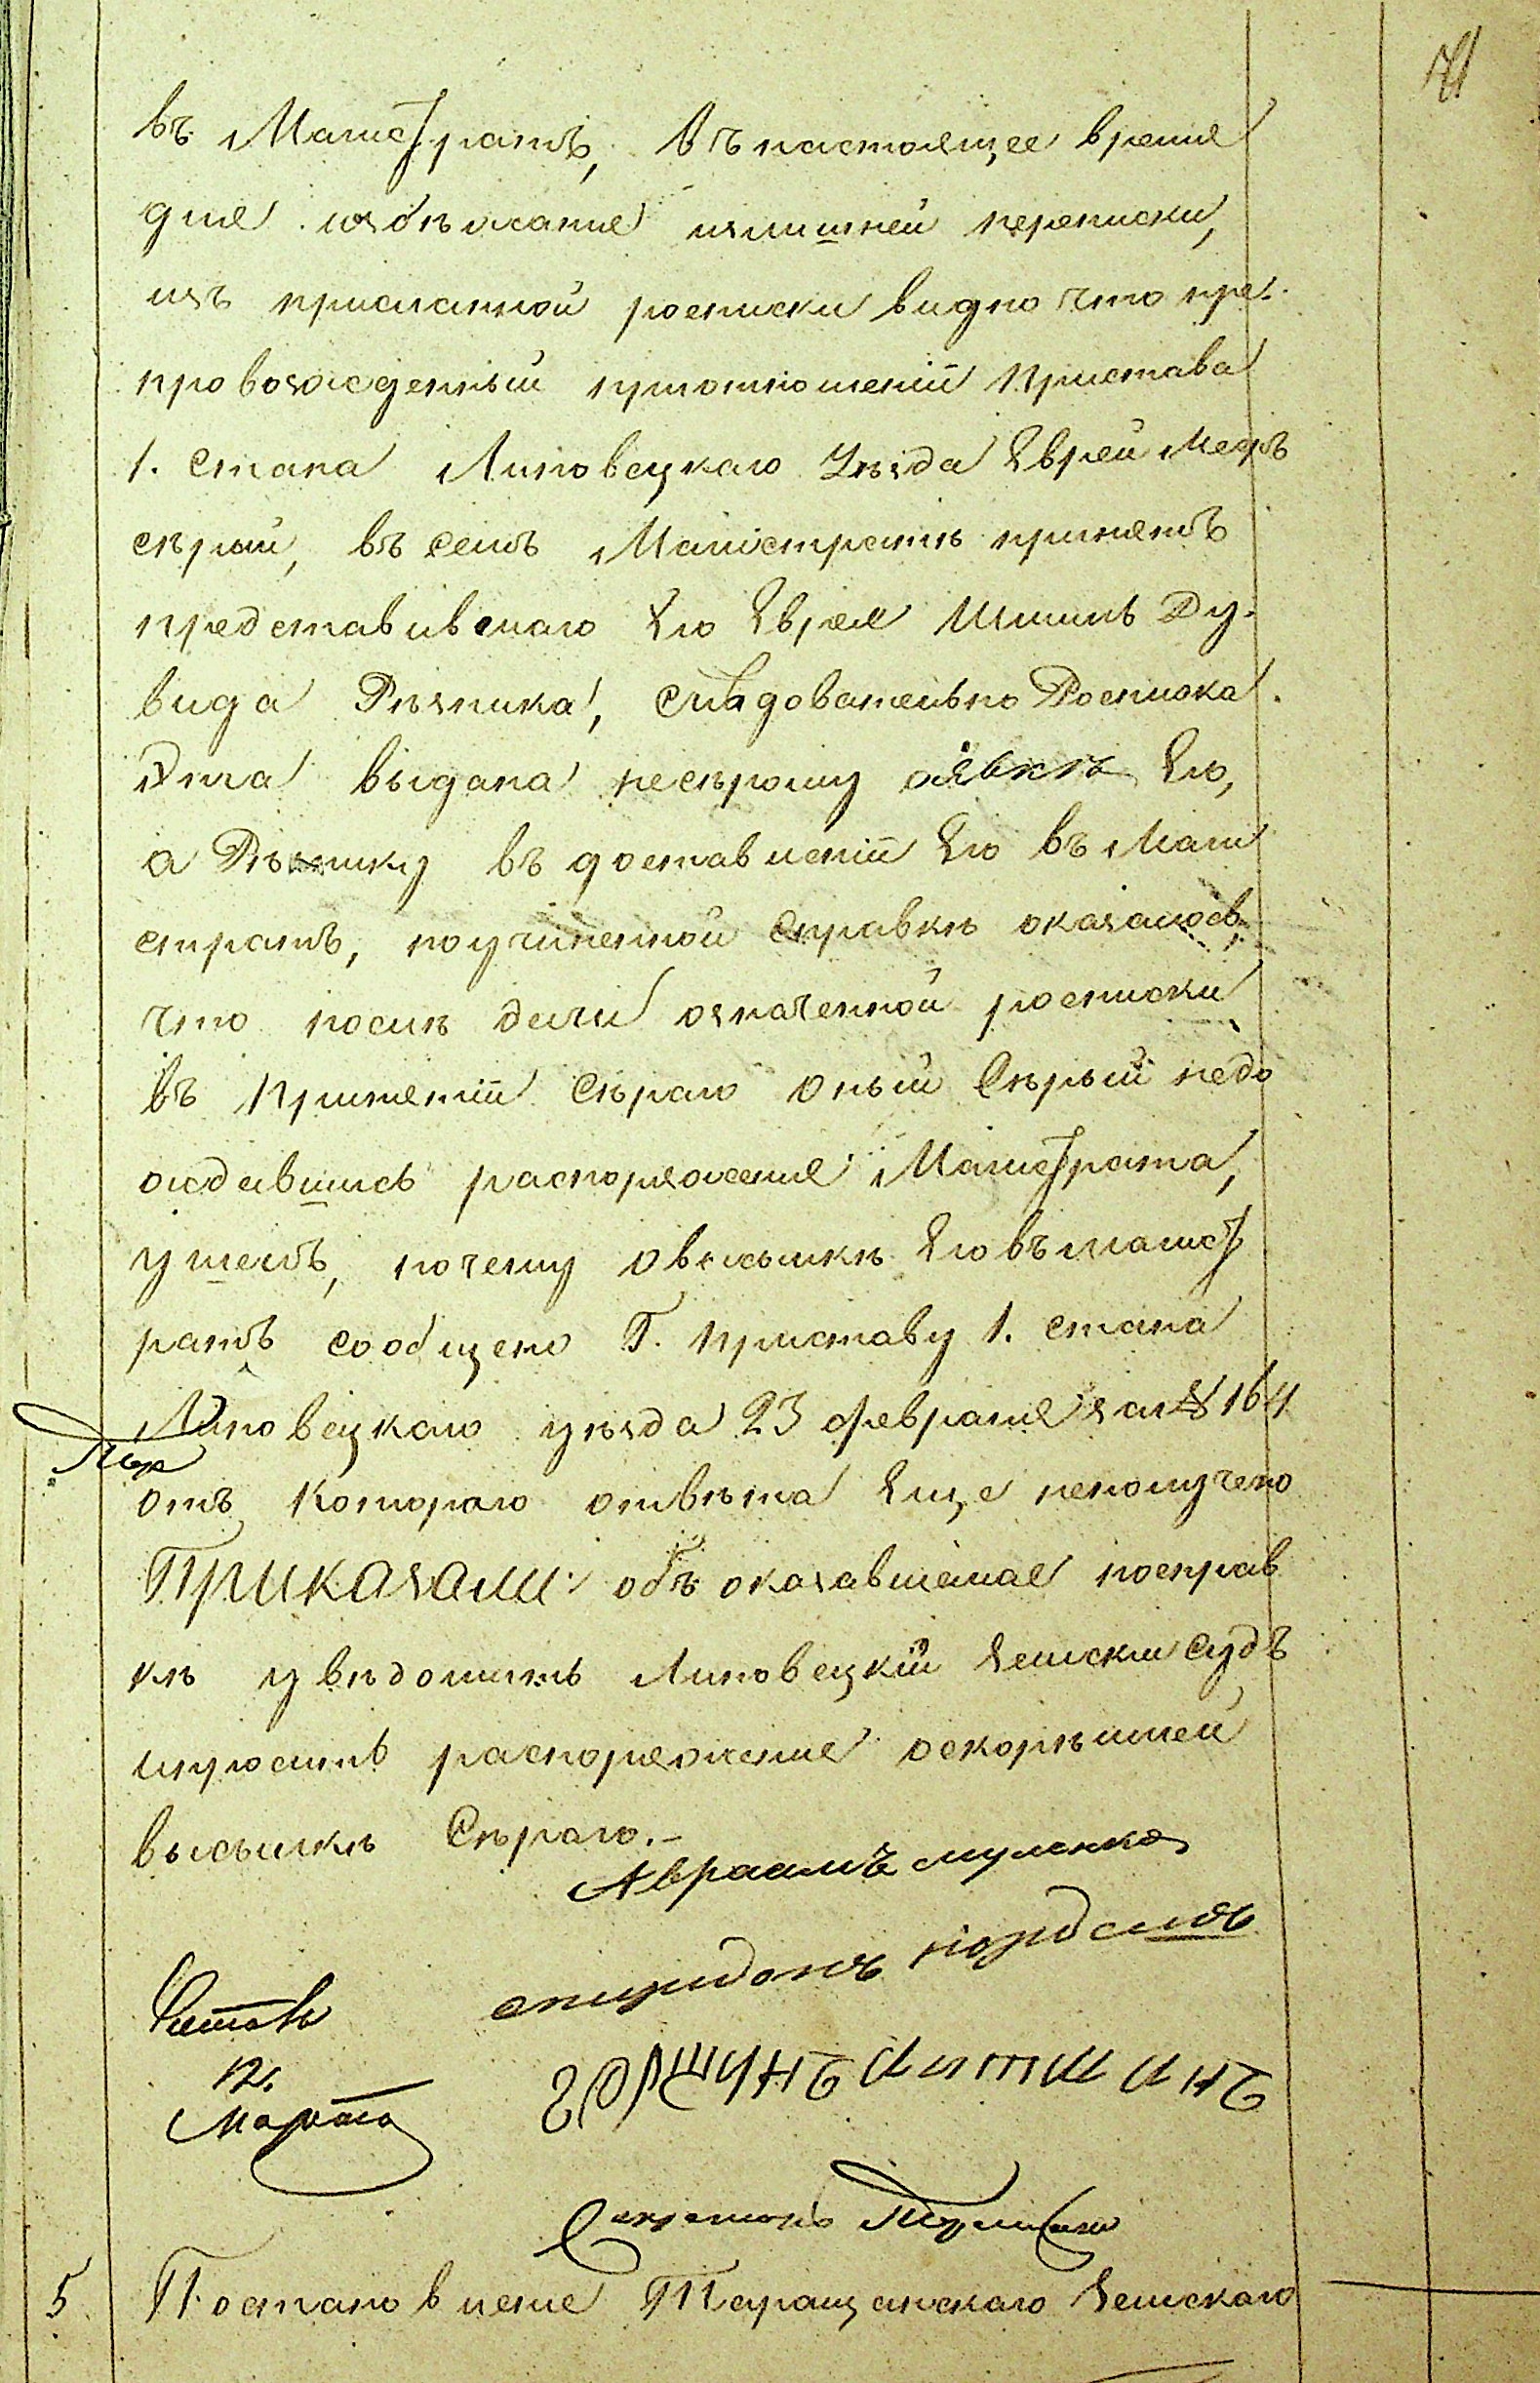 въ Магистратъ, въ настоящее время
для избѣжанія излишней переписки,
изъ присланной росписки видно что пре-
провожденный приотношеніи Пристава
1. стана Липовецкаго Уѣзда Еврей Меєръ
сѣрый, въ семъ Магистратѣ принятъ
представившаго Его Еврея Шмиль Ду-
вида Рѣзника, слѣдовательно Росписка
Эта выдана несѣрому оявкѣ Его,
а Рѣзнику въ доставленіи Его въ Маги
стратъ, поучиненной справкѣ оказалось,
что послѣ дачи означенной росписки
въ принятіи Сѣраго оный Сѣрый недо
ождавшись распоряженія Магистрата,
ушелъ, почему овысылкѣ Его въ магист
ратъ сообщено Г. Приставу 1. стана
Липовецкаго уѣзда 23 февраля за № 164
отъ котораго отвѣта Еще неполучено
Приказали: объ оказавшемся посправ
кѣ увѣдомить Липовецкій Земскій судъ
ипросить распоряженія оскорѣйшей
высылкѣ Сѣраго.-
Авраамъ
спиридонъ
Читалъ
12.
Марта
Горшунъ
Секретарь
5 Постановленіе Таращанскаго Земскаго